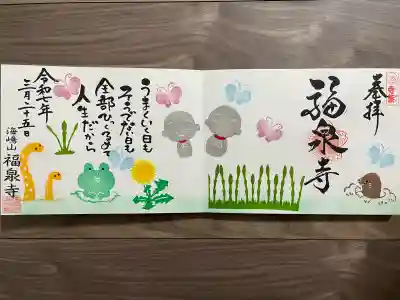 奉拝
福泉寺
うまくいく日も
そうでない日も
全部ひっくるめて
人生だから
令和七年
三月二十五日
海嶋山 福泉寺